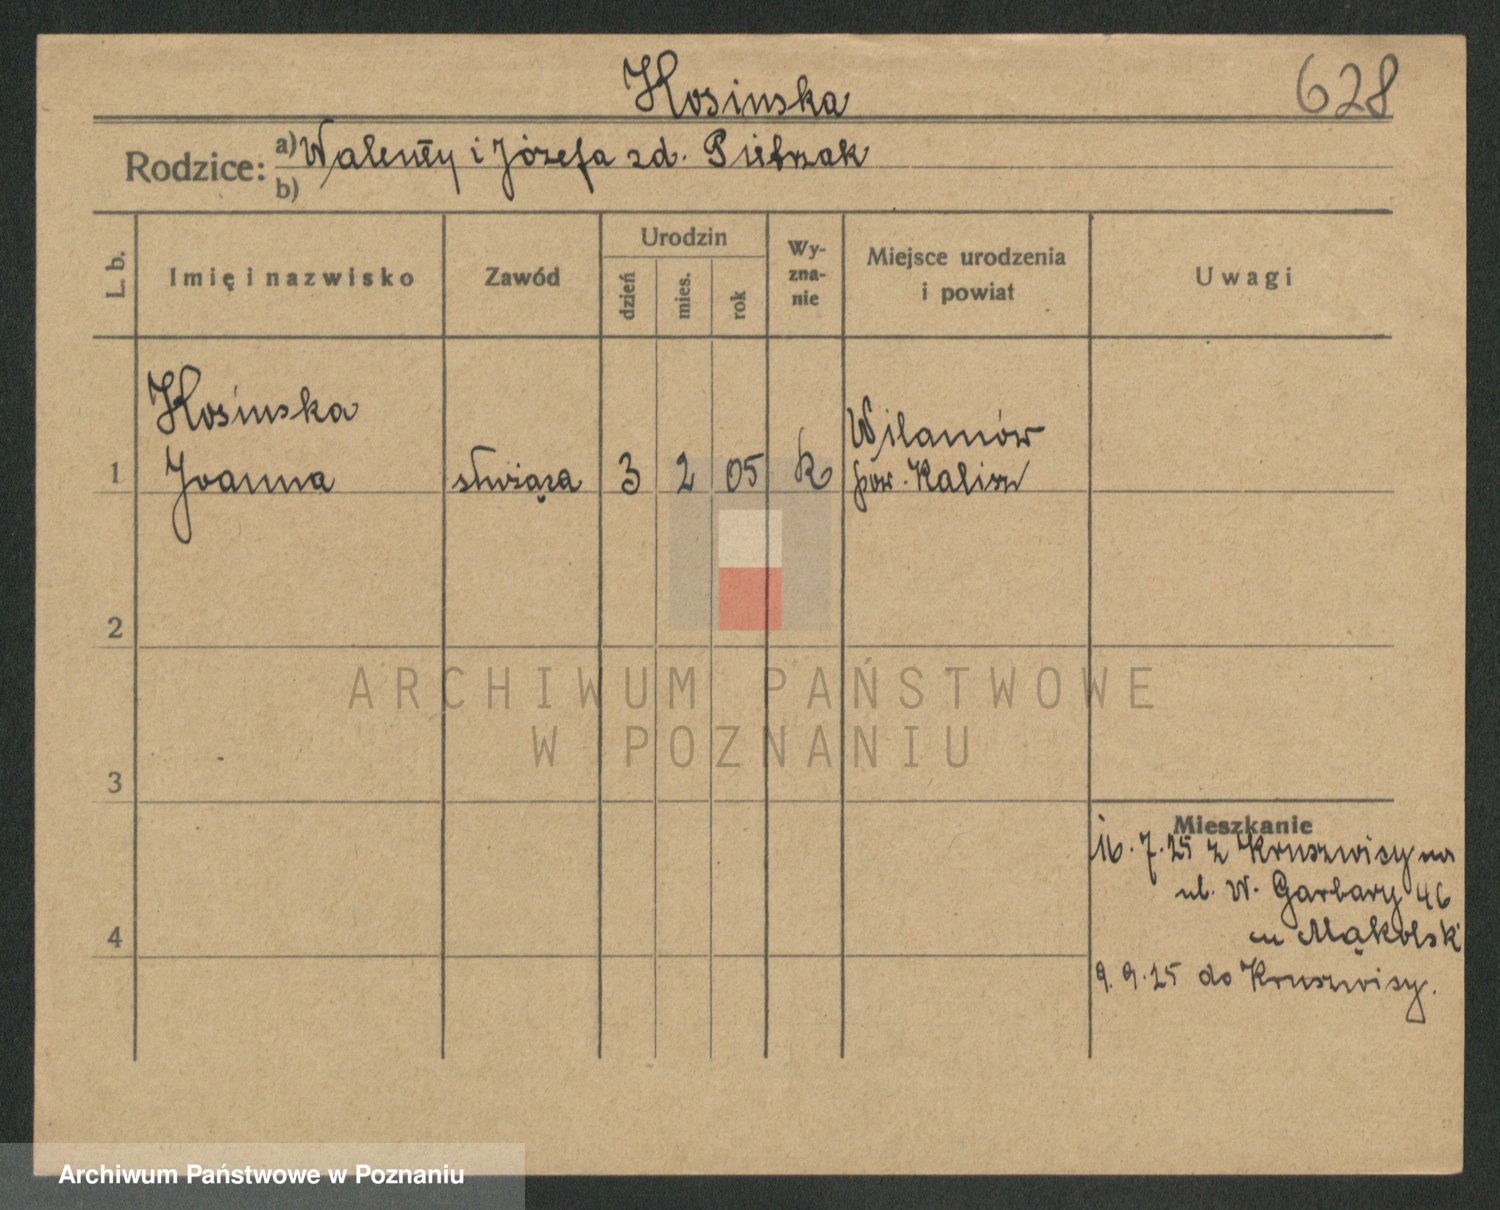 Kosinska
628
Rodzice: a) Walenty i Józefa zd. Pietrzak
b)
L. b.
Imię i nazwisko
Zawód
Urodzin
dzień
mies.
rok
Wy-
zna-
nie
Miejsce urodzenia
i powiat
Uwagi
Kosinska
1 Joanna służąca 3 2 05 k
Wilamów
pow. Kalisz
2
3
4
Mieszkanie
16.7.25 z Kruszwicy na
ul. W. Garbary 46
u Mąkolsk
9.9.25 do Kruszwicy.
ARCHIWUM PAŃSTWOWE
W POZNANIU
Archiwum Państwowe w Poznaniu